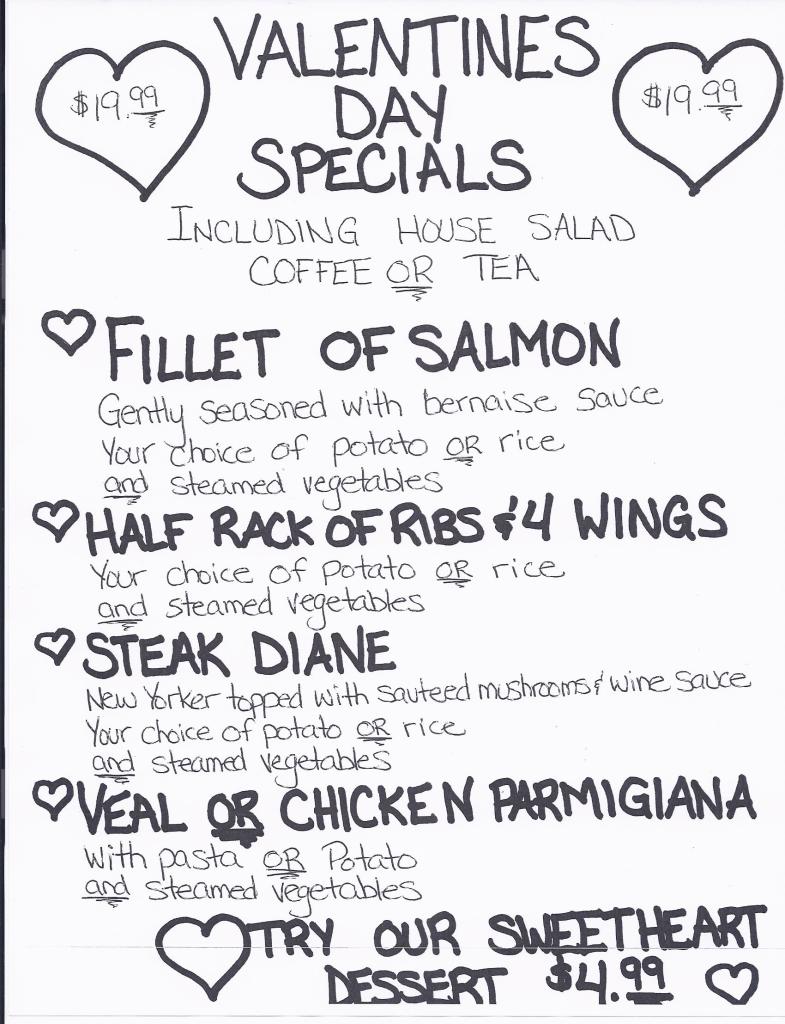 VALENTINES
$19.99
$19.99
DAY
SPECIALS
INCLUDING HOUSE SALAD
COFFEE OR TEA
FILLET OF SALMON
Gently seasoned with bernaise sauce
Your choice of potato OR rice
and steamed vegetables
HALF RACK OF RIBS & 4 WINGS
Your choice of potato OR rice
and steamed vegetables
STEAK DIANE
New Yorker topped with sauteed mushrooms & wine sauce
Your choice of potato OR rice
and steamed vegetables
VEAL OR CHICKEN PARMIGIANA
With pasta OR Potato
and steamed vegetables
TRY OUR SWEETHEART
DESSERT $4.99